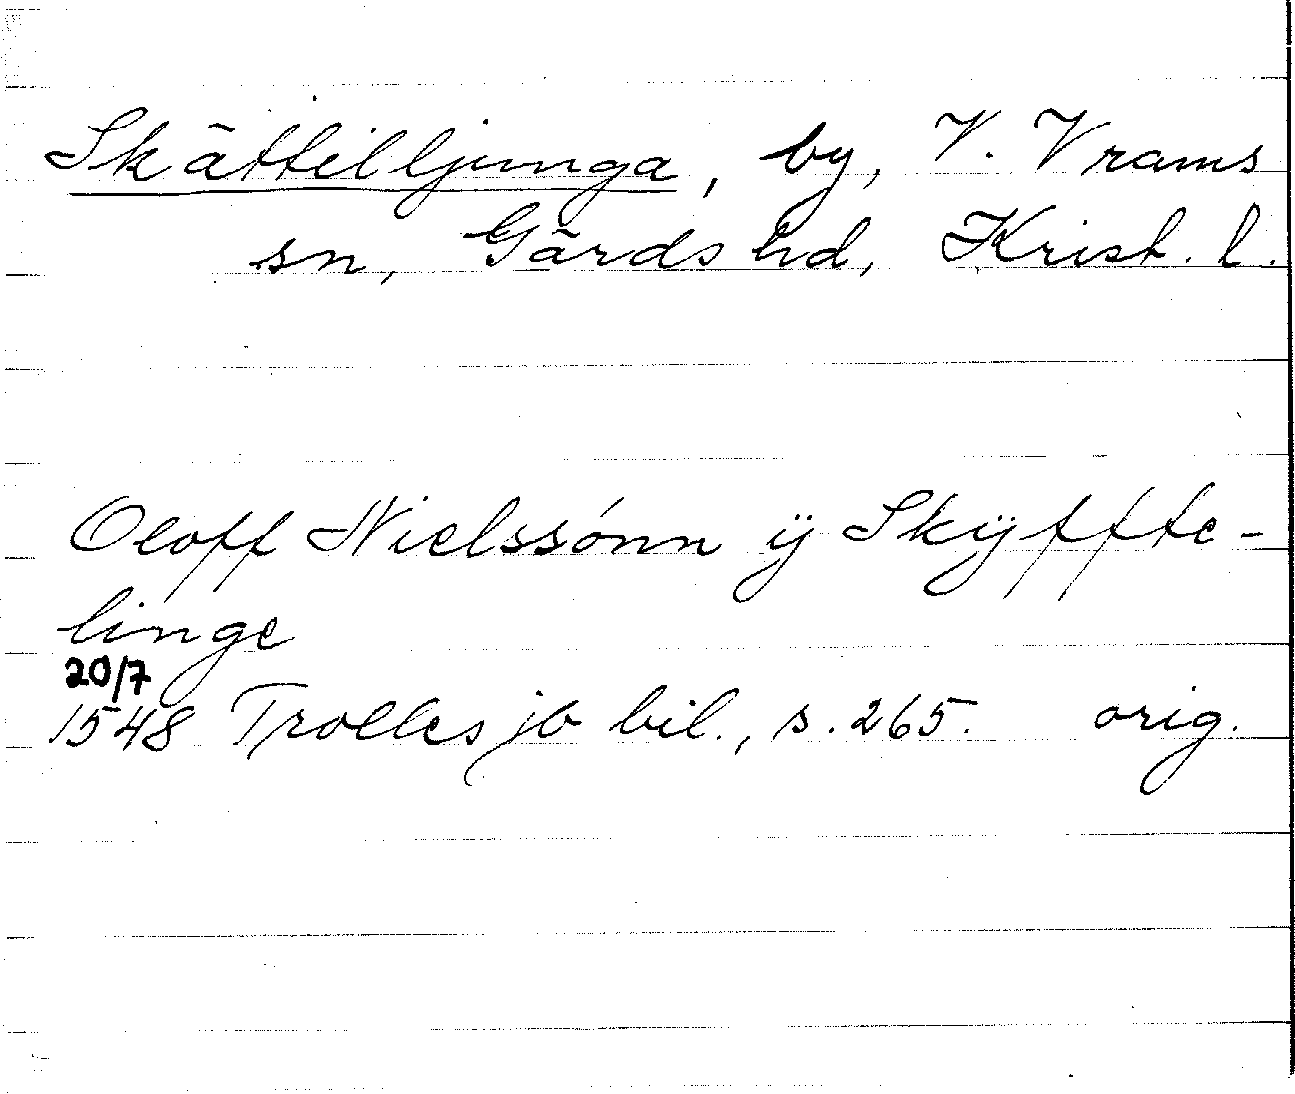 Skättilljunga, by, V. Vrams
sn, Gärds hd, Krist. l.
Oloff Nielssónn ÿ Skÿffte-
linge
20/7
1548 Trolles jb bil., s. 265. orig.